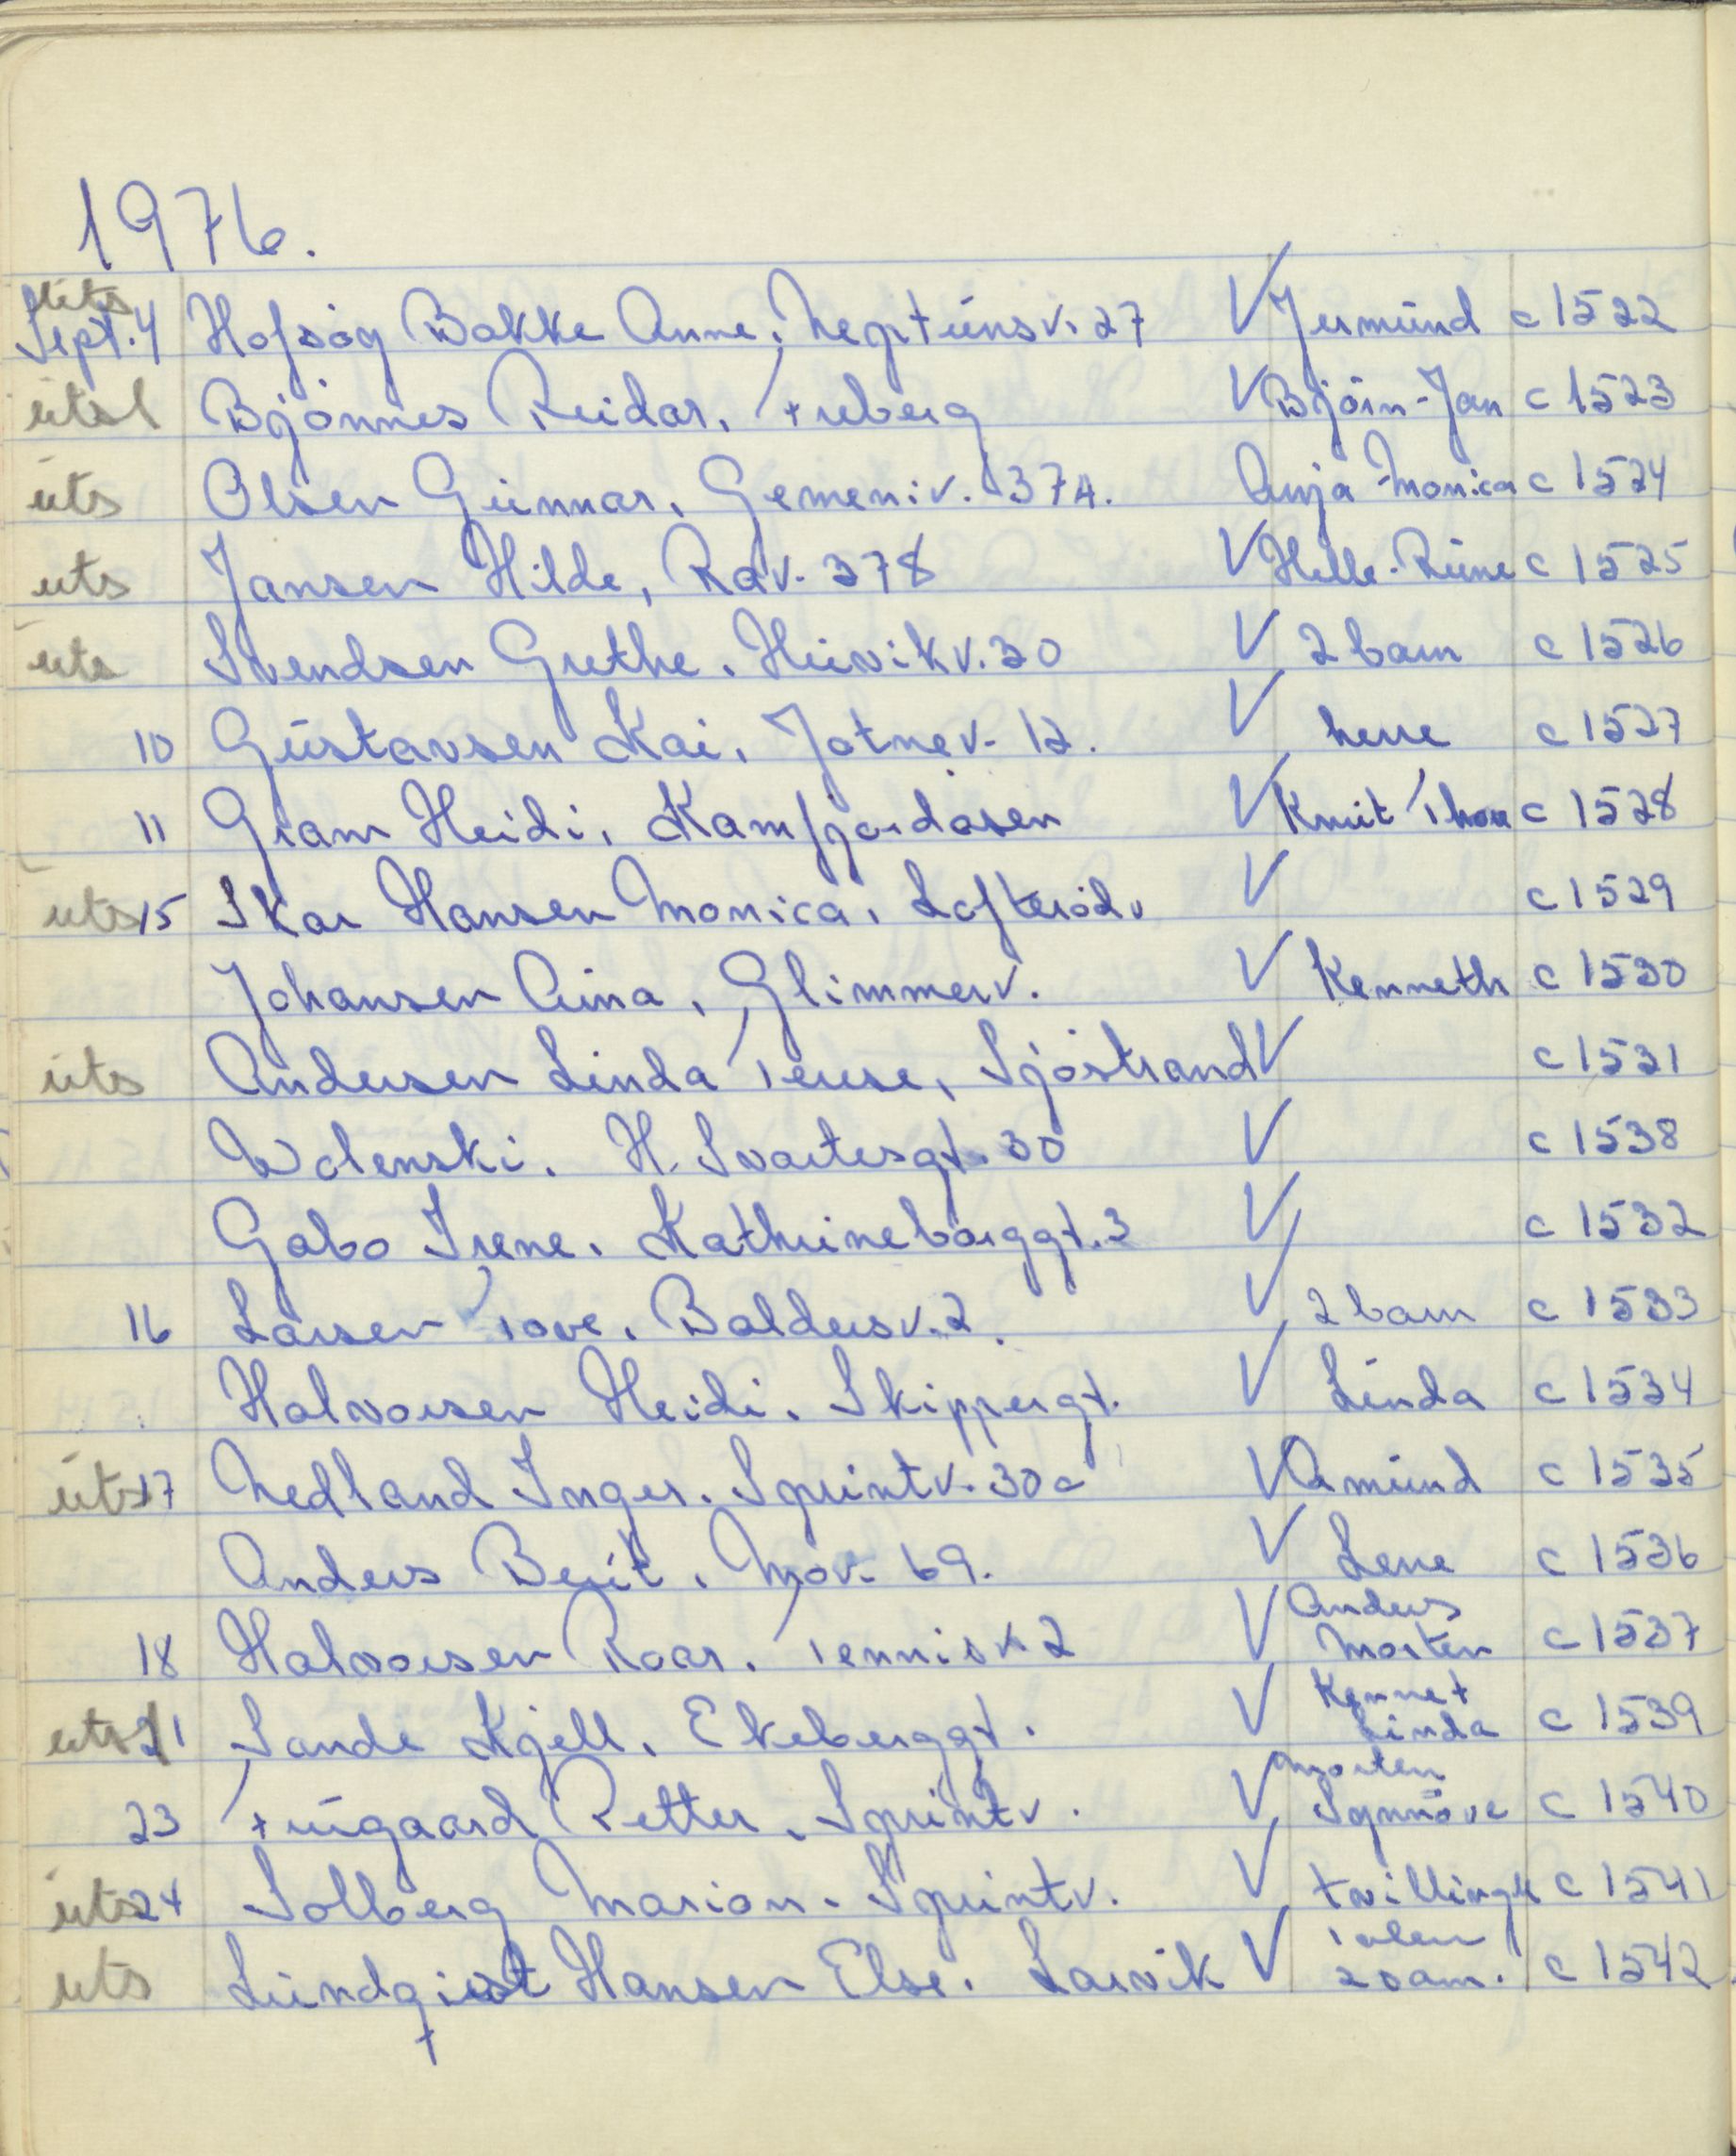 1976.
uts
Sept. 4 Hofsøy Bakke Anne, Neptunsv. 27 V Jermund c 1522
uts 1 Bjønnes Reidar, Treberg V Bjørn-Jan c 1523
uts Olsen Gunnar, Gemeniv. 37A. Anja-Monica c 1524
uts Jansen Hilde, Rav. 378 V Helle-Rune c 1525
uts Svendsen Grethe. Huvikv. 30 V 2 barn c 1526
10 Gustavsen Kai, Jotnev. 12. V herre c 1527
11 Gram Heidi, Kamfjordåsen V Knut Thore c 1528
uts 15 Skar Hansen Monica, Lofterødv V c 1529
Johansen Aina, Glimmerv. V Kenneth c 1530
uts Andersen Linda Terese, Sjøstrand V c 1531
Wolenski. H. Svartesgt. 30 V c 1538
Gabo Irene. Kathrineborggt. 3 V c 1532
16 Larsen Tove. Baldersv. 2. V 2 barn c 1533
Halvorsen Heidi. Skippergt. V Linda c 1534
uts 17 Nedland Inger. Sprintv. 30c V Amund c 1535
Anders Berit. Mov. 69. V Lene c 1536
18 Halvorsen Roar. Tennisv. 2 V Anders
Morten c 1537
uts 21 Sande Kjell. Ekeberggt. V Kennet
Linda c 1539
23 Trugaard Petter. Sprintv. V Morten
Synnøve c 1540
uts 24 Solberg Marion. Sprintv. V tvilling c 1541
uts Lundqist Hansen Else. Larvik V c 1542